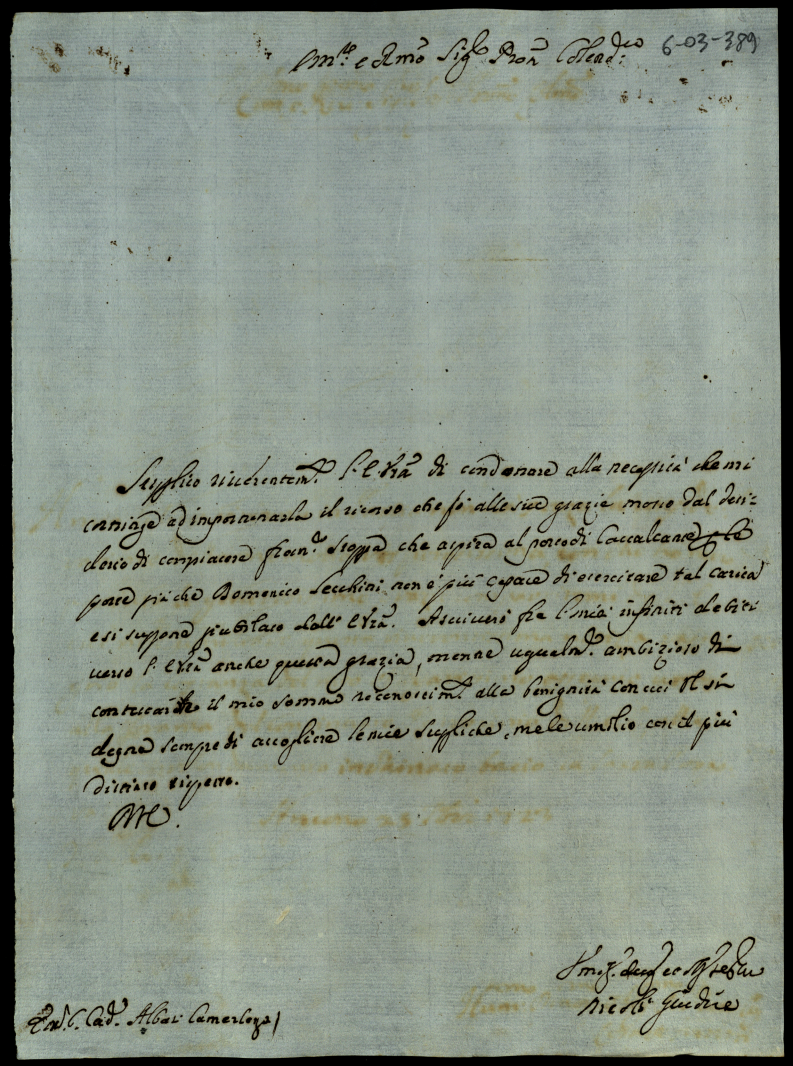 Em.º e Rmo Sig.r Pron Colend.mo 6-03-389
Supplico riverentem.te l'E. Vra di condonare alla necessità che mi
costringe ad importunarla il ricorso che fò alle sue grazie mosso dal desi-
derio di compiacere Fran.o Stoppa che aspira al posto di Cavalcante
poste più che Domenico Secchini non è più capace di esercitare tal carica
e si suppone giubilato dall'E Vra. Ascriverò fra l'miei infiniti debiti
verso l'E Vra anche questa grazia, mentre ugualm.e ambizioso di
contestarle il mio sommo riconoscim.to alla benignità con cui si
degna sempre di accogliere le mie suppliche, me le umilio con il più
distinto rispetto.
Nicolò Giudice
Em. S. Card. Albani Camerlengo